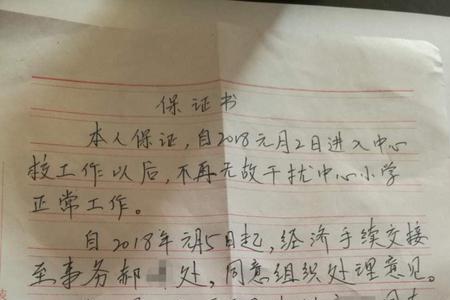 保证书
本人保证，自2018元月2日进入中心
校工作以后，不再无故干扰中心小学
正常工作。
自2018年元月5日起，经济手续交接
至事务郝处，同意组织处理意见。